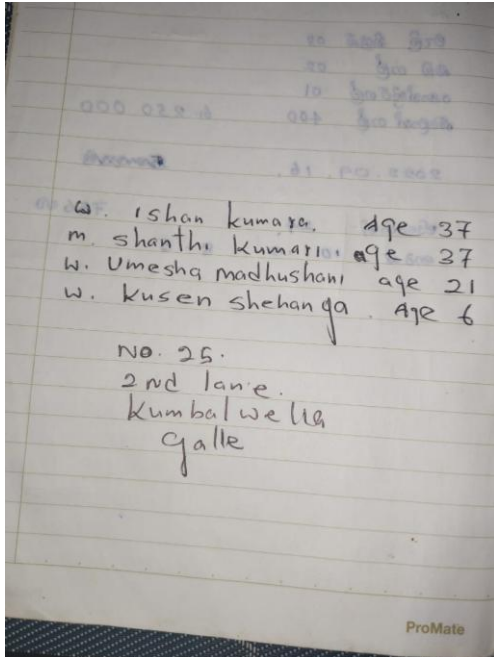 W. Ishan kumara. Age 37
m. shanthi kumari. age 37
W. Umesha madhushani age 21
W. kusen shehanga. Age 6
No. 25.
2nd lane.
Kumbalwella
Galle
ProMate